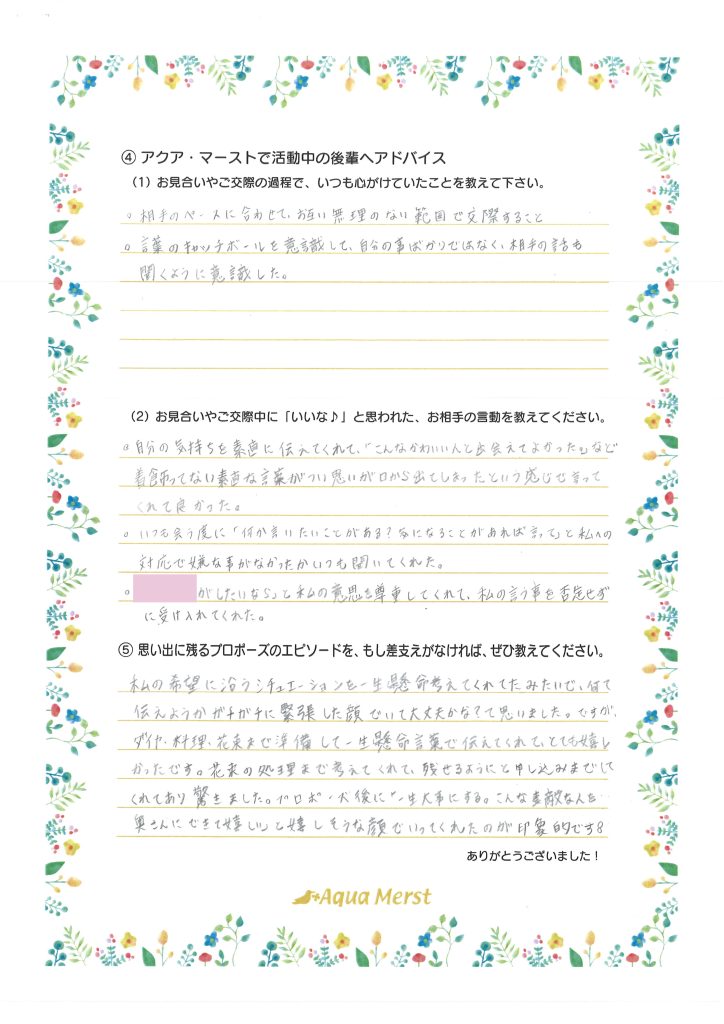 ④ アクア・マーストで活動中の後輩へアドバイス
（1）お見合いやご交際の過程で、いつも心がけていたことを教えて下さい。
○ 相手のペースに合わせて、お互い無理のない範囲で交際すること
○ 言葉のキャッチボールを意識して、自分の事ばかりではなく、相手の話も
聞くように意識した。
（2）お見合いやご交際中に「いいな♪」と思われた、お相手の言動を教えてください。
○ 自分の気持ちを素直に伝えてくれて、「こんなかわいい人と出会えてよかった」など
着飾ってない素直な言葉がつい思いが口から出てしまったという感じで言って
くれて良かった。
○ いつも会う度に「何か言いたいことがある？気になることがあれば言って」と私への
対応で嫌な事がなかったかいつも聞いてくれた。
○ がしたいなら」と私の意思を尊重してくれて、私の言う事を否定せず
に受け入れてくれた。
⑤ 思い出に残るプロポーズのエピソードを、もし差支えがなければ、ぜひ教えてください。
私の希望に沿うシチュエーションを一生懸命考えてくれてたみたいで、何て
伝えようかガチガチに緊張した顔でいて大丈夫かな？て思いました。ですが、
ダイヤ・料理、花束まで準備して一生懸命言葉で伝えてくれて、とても嬉し
かったです。花束の処理まで考えてくれて、残せるようにと申し込みまでして
くれてあり驚きました。プロポーズ後に「一生大事にする。こんな素敵な人を
奥さんにできて嬉しい」と嬉しそうな顔でいってくれたのが印象的です
ありがとうございました！
Aqua Merst